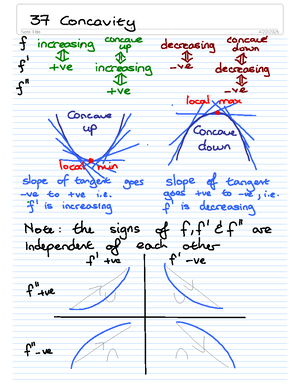 37 Concavity
f increasing concave up decreasing concave down
f' +ve increasing -ve decreasing
f" +ve -ve
local max
Concave up
Concave down
local min
slope of tangent goes slope of tangent
-ve to +ve i.e. goes +ve to -ve, i.e.
f' is increasing f' is decreasing
Note: the signs of f, f' & f" are
independent of each other
f' +ve f' -ve
f" +ve
f" -ve